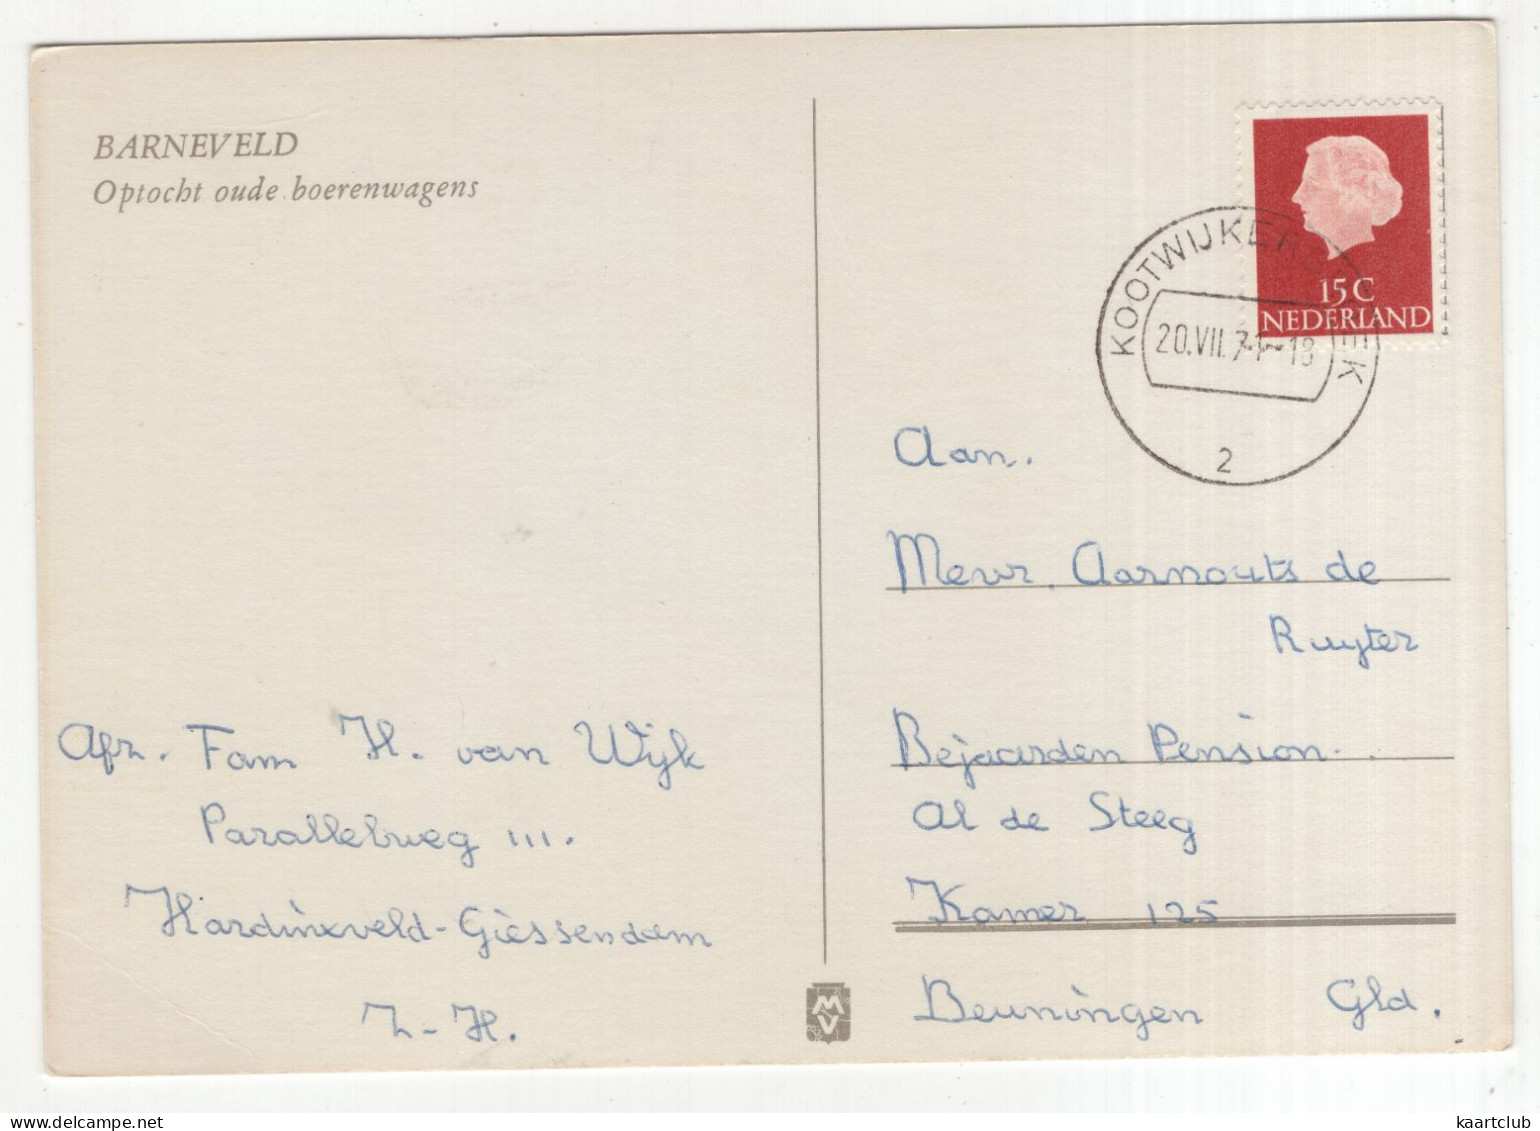 BARNEVELD
Optocht oude boerenwagens
15 C
NEDERLAND
KOOTWIJKERBROEK
20.VII.71-18
2
Aan.
Mevr. Aarnouts de
Ruyter
Bejaarden Pension.
Al de Steeg
Kamer 125
Beuningen Gld.
Afz. Fam H. van Wijk
Parallelweg 111.
Hardinxveld-Giessendam
Z-H.
MV
kaartclub